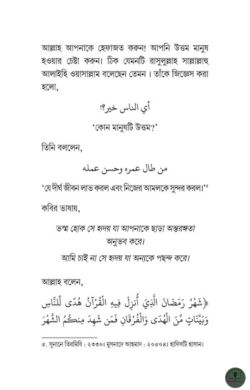 আল্লাহ আপনাকে হেফাজত করুন! আপনি উত্তম মানুষ
হওয়ার চেষ্টা করুন। ঠিক যেমনটি রাসুলুল্লাহ সাল্লাল্লাহু
আলাইহি ওয়াসাল্লাম বলেছেন তেমন। তাঁকে জিজ্ঞেস করা
হলো,
أي الناس خير؟!
‘কোন মানুষটি উত্তম?’
তিনি বললেন,
من طال عمره وحسن عمله
‘যে দীর্ঘ জীবন লাভ করল এবং নিজের আমলকে সুন্দর করল।’⁵
কবির ভাষায়,
ভস্ম হোক সে হৃদয় যা আপনাকে ছাড়া অন্তরঙ্গতা
অনুভব করে।
আমি চাই না সে হৃদয় যা অন্যকে পছন্দ করে।
আল্লাহ বলেন,
﴿شَهْرُ رَمَضَانَ الَّذِي أُنزِلَ فِيهِ الْقُرْآنُ هُدًى لِّلنَّاسِ
وَبَيِّنَاتٍ مِّنَ الْهُدَى وَالْفُرْقَانِ فَمَن شَهِدَ مِنكُمُ الشَّهْرَ
৫. সুনানে তিরমিযি : ২৩৩০; মুসনাদে আহমাদ : ২০৫০৪। হাদিসটি হাসান।